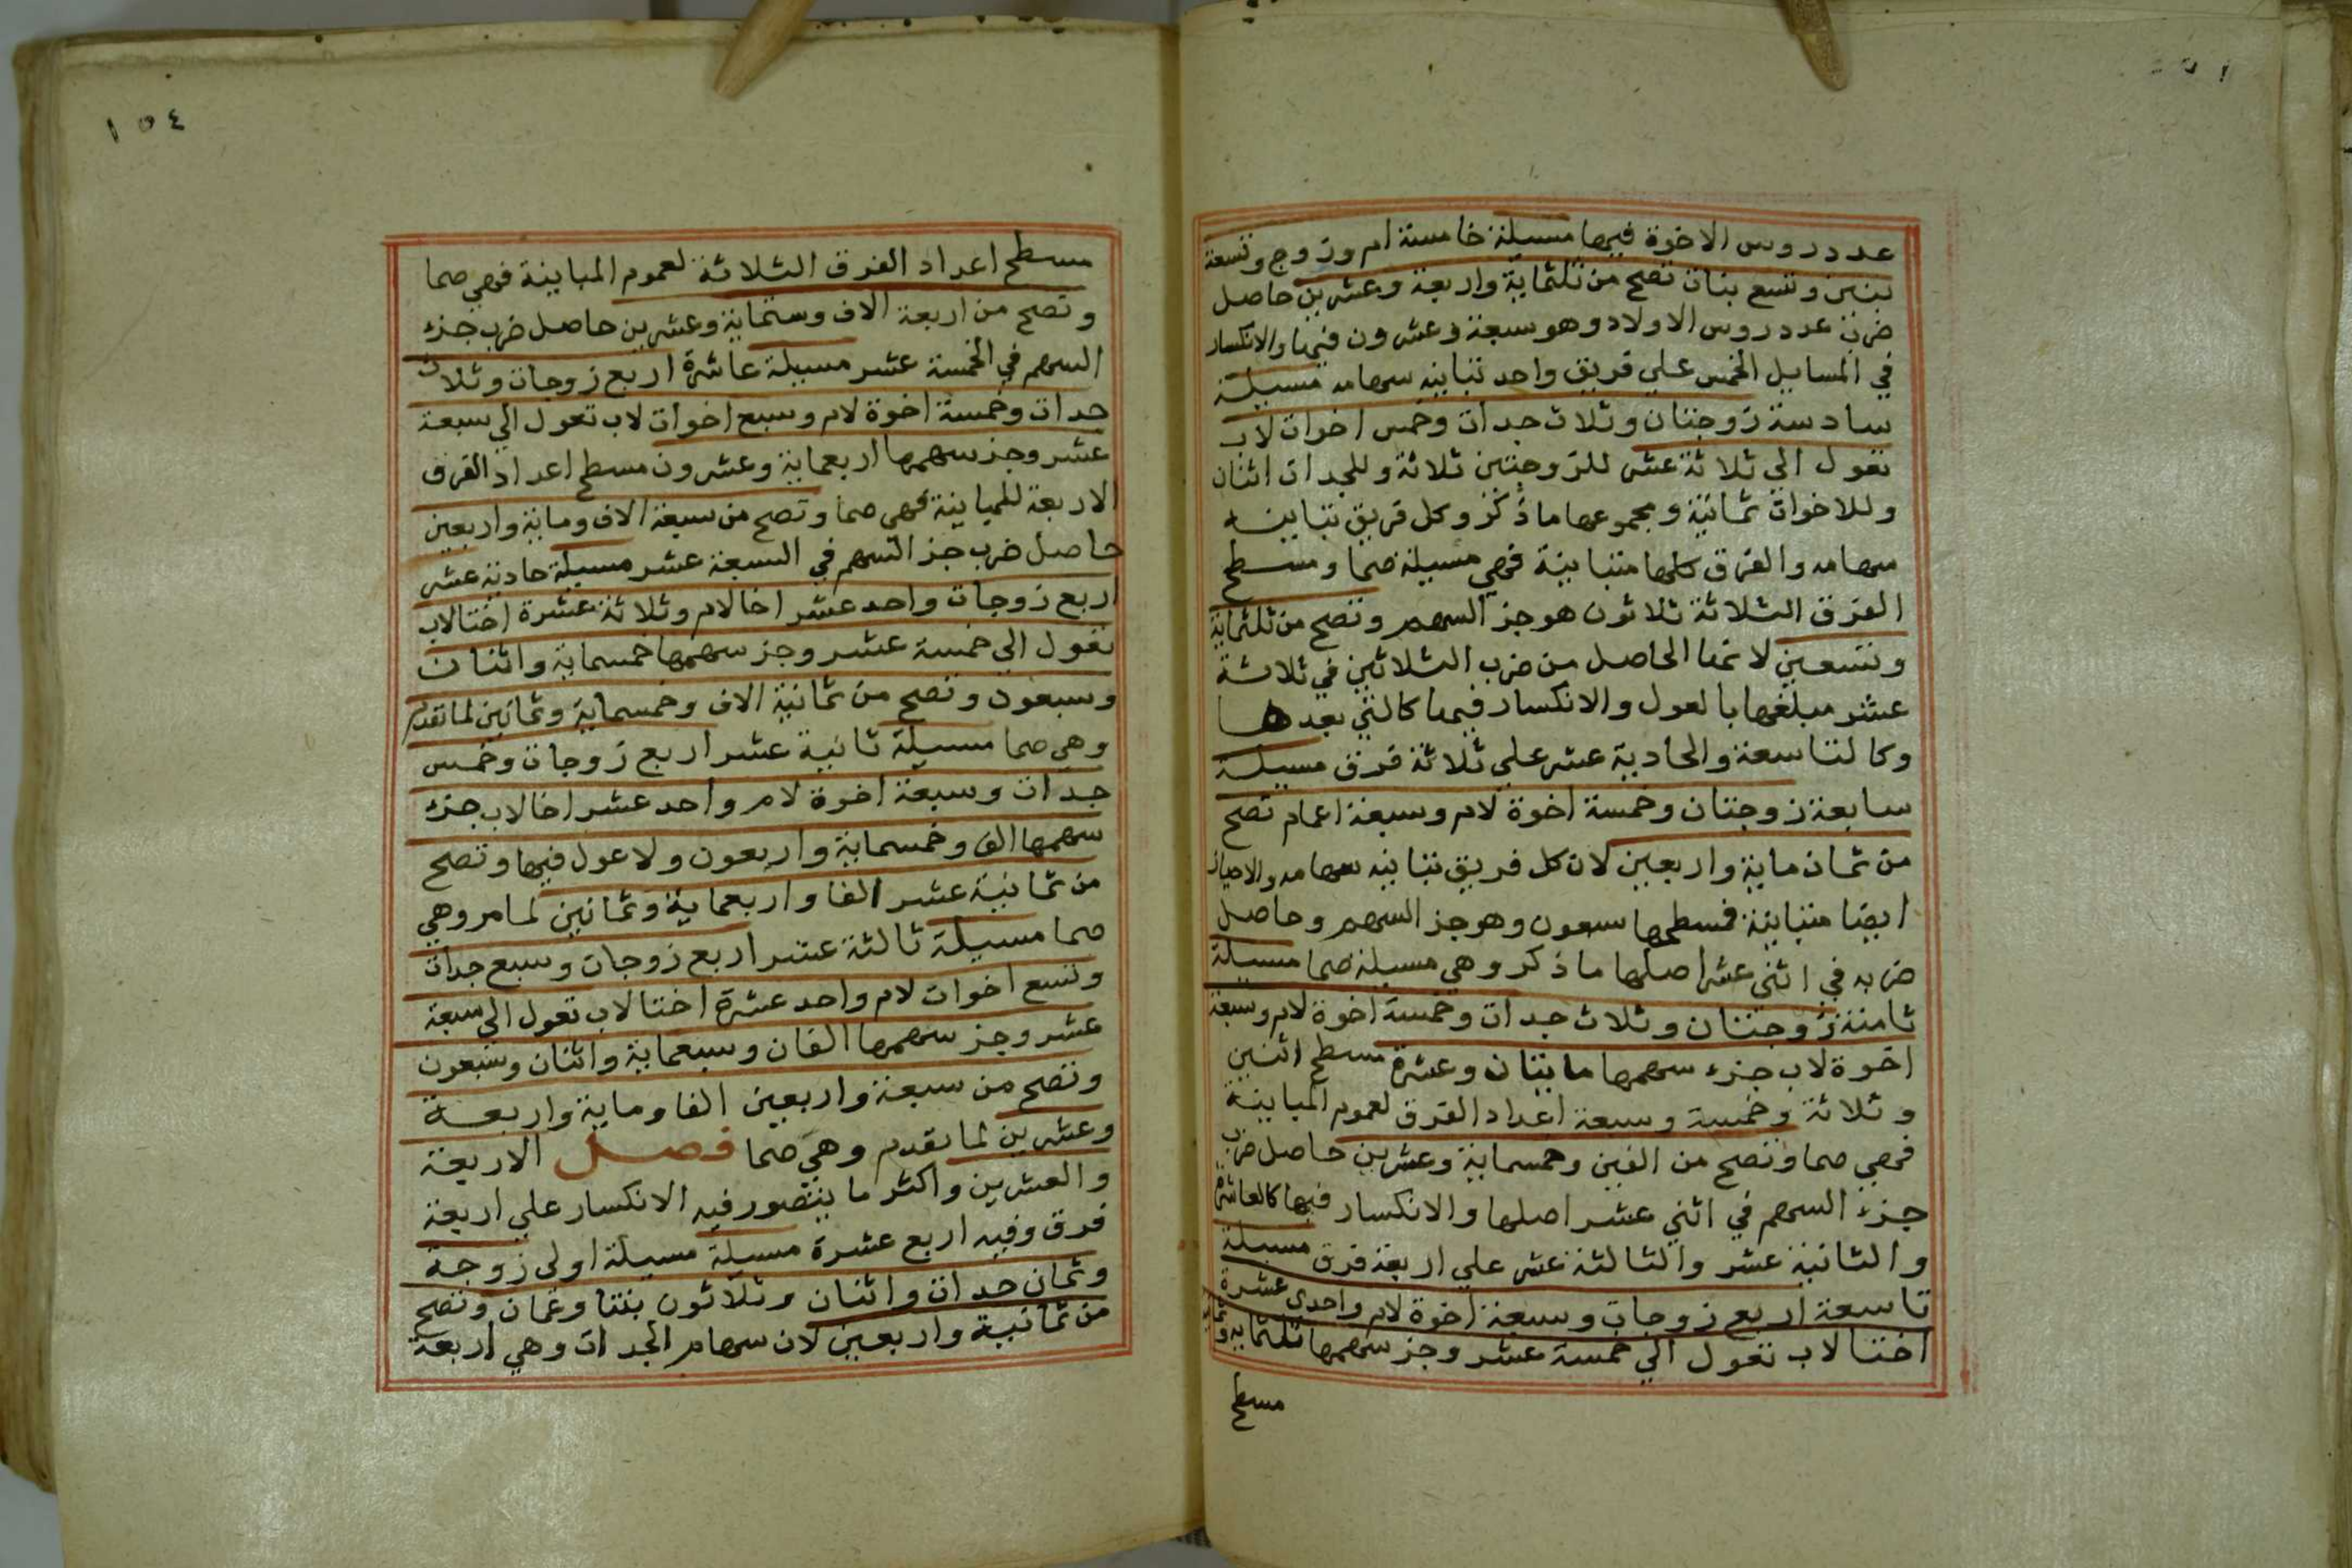 عدد روس الاخوة فيها مسيلة خامسة ام وزوج وتسعة
بنين وتسع بنات تصح من ثلثماية واربعة وعشرين حاصل
ضرب عدد روس الاولاد وهو سبعة وعشرون فيها والانكسار
في المسايل الخمس علي فريق واحد تباينه سهامه مسيلة
سادسة زوجتان وثلاث جدات وخمس اخوات لاب
تعول الي ثلاثة عشر للزوجتين ثلاثة وللجدات اثنان
وللاخوات ثمانية ومجموعها ما ذكر وكل فريق تباينه
سهامه والفرق كلها متباينة فهي مسيلة صما ومسطح
الفرق الثلاثة ثلاثون هو جز السهم وتصح من ثلثماية
وتسعين لانها الحاصل من ضرب الثلاثين في ثلاثة
عشر مبلغها بالعول والانكسار فيها كالتي بعدها
وكالتاسعة والحادية عشر علي ثلاثة فرق مسيلة
سابعة زوجتان وخمسة اخوة لام وسبعة اعمام تصح
من ثمان ماية واربعين لان كل فريق تباينه سهامه والاحياز
ايضا متباينة فمسطحها سبعون وهو جز السهم وحاصل
ضربه في اثني عشر اصلها ما ذكر وهي مسيلة صما مسيلة
ثامنة زوجتان وثلاث جدات وخمسة اخوة لام وسبعة
اخوة لاب جزء سهمها مايتان وعشرة مسطح اثنين
وثلاثة وخمسة وسبعة اعداد الفرق لعموم المباينة
فهي صما وتصح من الفين وخمسماية وعشرين حاصل ضرب
جزء السهم في اثني عشر اصلها والانكسار فيها كالعاشرة
والثانية عشر والثالثة عشر علي اربعة فرق مسيلة
تاسعة اربع زوجات وسبعة اخوة لام واحدي عشرة
اختا لاب تعول الي خمسة عشر وجز سهمها ثلثماية وثمانية
مسطح
١٥٤
مسطح اعداد الفرق الثلاثة لعموم المباينة فهي صما
وتصح من اربعة الاف وستماية وعشرين حاصل ضرب جزء
السهم في الخمسة عشر مسيلة عاشرة اربع زوجات وثلاث
جدات وخمسة اخوة لام وسبع اخوات لاب تعول الي سبعة
عشر وجز سهمها اربعماية وعشرون مسطح اعداد الفرق
الاربعة للمباينة فهي صما وتصح من سبعة الاف وماية واربعين
حاصل ضرب جز السهم في السبعة عشر مسيلة حادية عشر
اربع زوجات واحد عشر اخا لام وثلاثة عشرة اختا لاب
تعول الي خمسة عشر وجز سهمها خمسماية واثنان
وسبعون وتصح من ثمانية الاف وخمسماية وثمانين لما تقدم
وهي صما مسيلة ثانية عشر اربع زوجات وخمس
جدات وسبعة اخوة لام واحد عشر اخا لاب جزء
سهمها الف وخمسماية واربعون ولا عول فيها وتصح
من ثمانية عشر الفا واربعماية وثمانين لما مر وهي
صما مسيلة ثالثة عشر اربع زوجات وسبع جدات
وتسع اخوات لام واحد عشرة اختا لاب تعول الي سبعة
عشر وجز سهمها الفان وسبعماية واثنان وسبعون
وتصح من سبعة واربعين الفا وماية واربعة
وعشرين لما تقدم وهي صما فصل الاربعة
والعشرين واكثر ما يتصور فيه الانكسار علي اربعة
فرق وفيه اربع عشرة مسيلة مسيلة اولي زوجة
وثمان جدات واثنان وثلاثون بنتا وعمان وتصح
من ثمانية واربعين لان سهام الجدات وهي اربعة